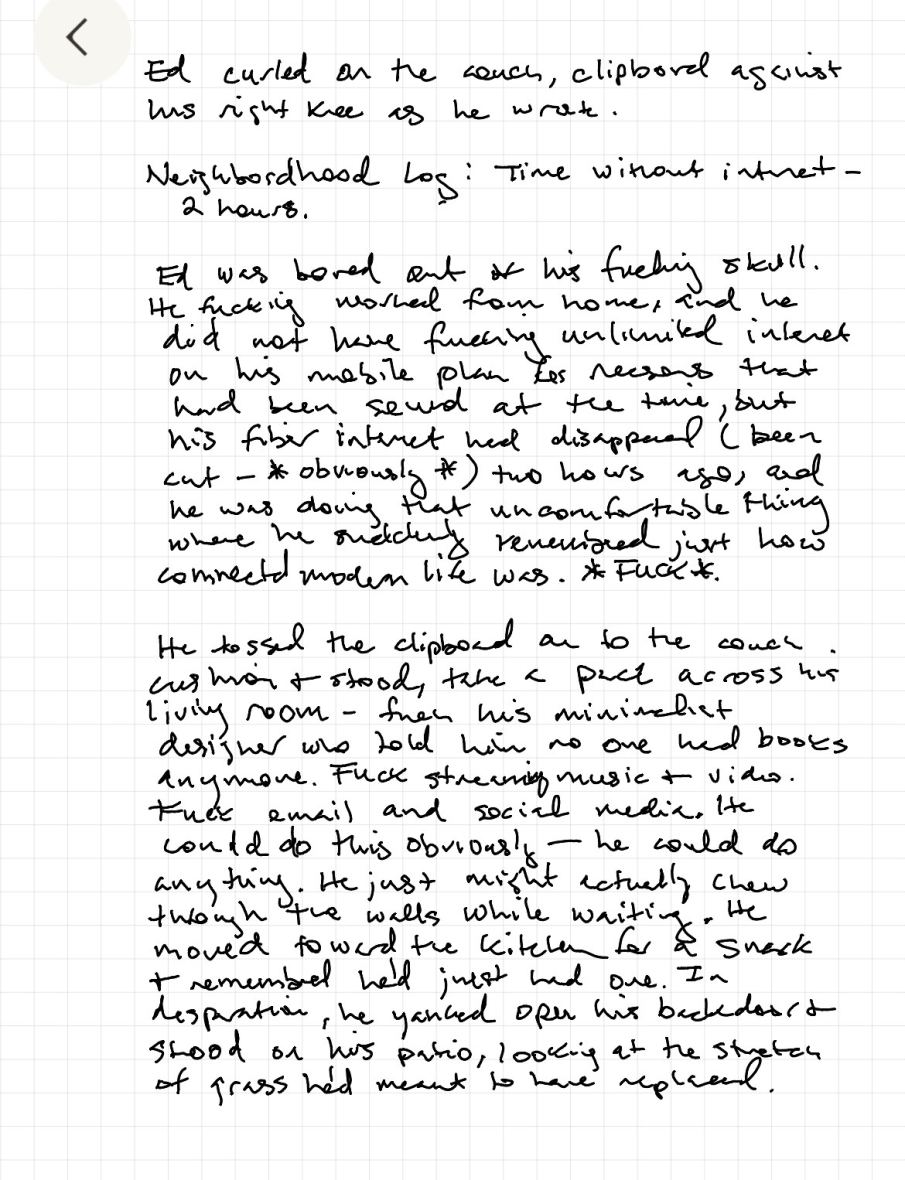 Ed curled on the couch, clipbord against
his right knee as he wrote.
Neighbordhood Log: Time without intrnet -
2 hours.
Ed was bored out of his fucking skull.
He fucking worked from home, and he
did not have fucking unlimited internet
on his mobile plan for reasons that
had been sound at the time, but
his fiber internet had disappeared (been
cut - *obviously*) two hours ago, and
he was doing that uncomfortable thing
where he suddenly remembered just how
connected modern life was. *Fuck*.
He tossed the clipboard on to the couch
cushion + stood, take a pace across his
living room - fuck his minimalist
designer who told him no one had books
anymore. Fuck streaming music + video.
Fuck email and social media. He
could do this obviously — he could do
anything. He just might actually chew
through the walls while waiting. He
moved toward the kitchen for a snack
+ remembered he'd just had one. In
desperation, he yanked open his backdoor +
stood on his patio, looking at the stretch
of grass he'd meant to have replaced.